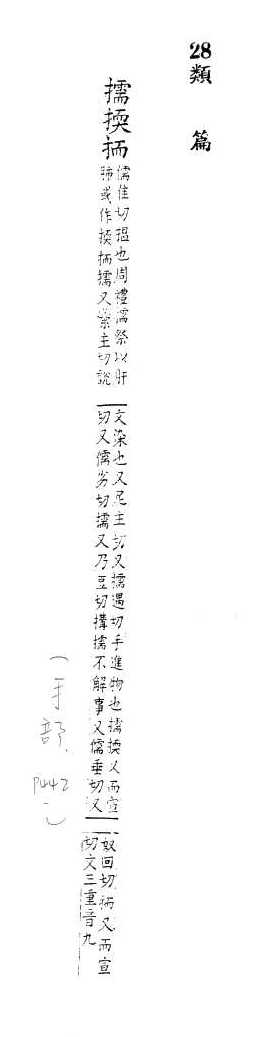 28類 篇
擩㨎抐
儒隹切揾也周禮擩祭以肝
肺或作㨎抐擩又蘂主切說
文染也又尼主切又擩遇切手進物也擩㨎又而宣
切又儒劣切擩又乃豆切搆擩不解事又儒垂切又
奴回切抐又而宣
切文三重音九
(手部,
P442)